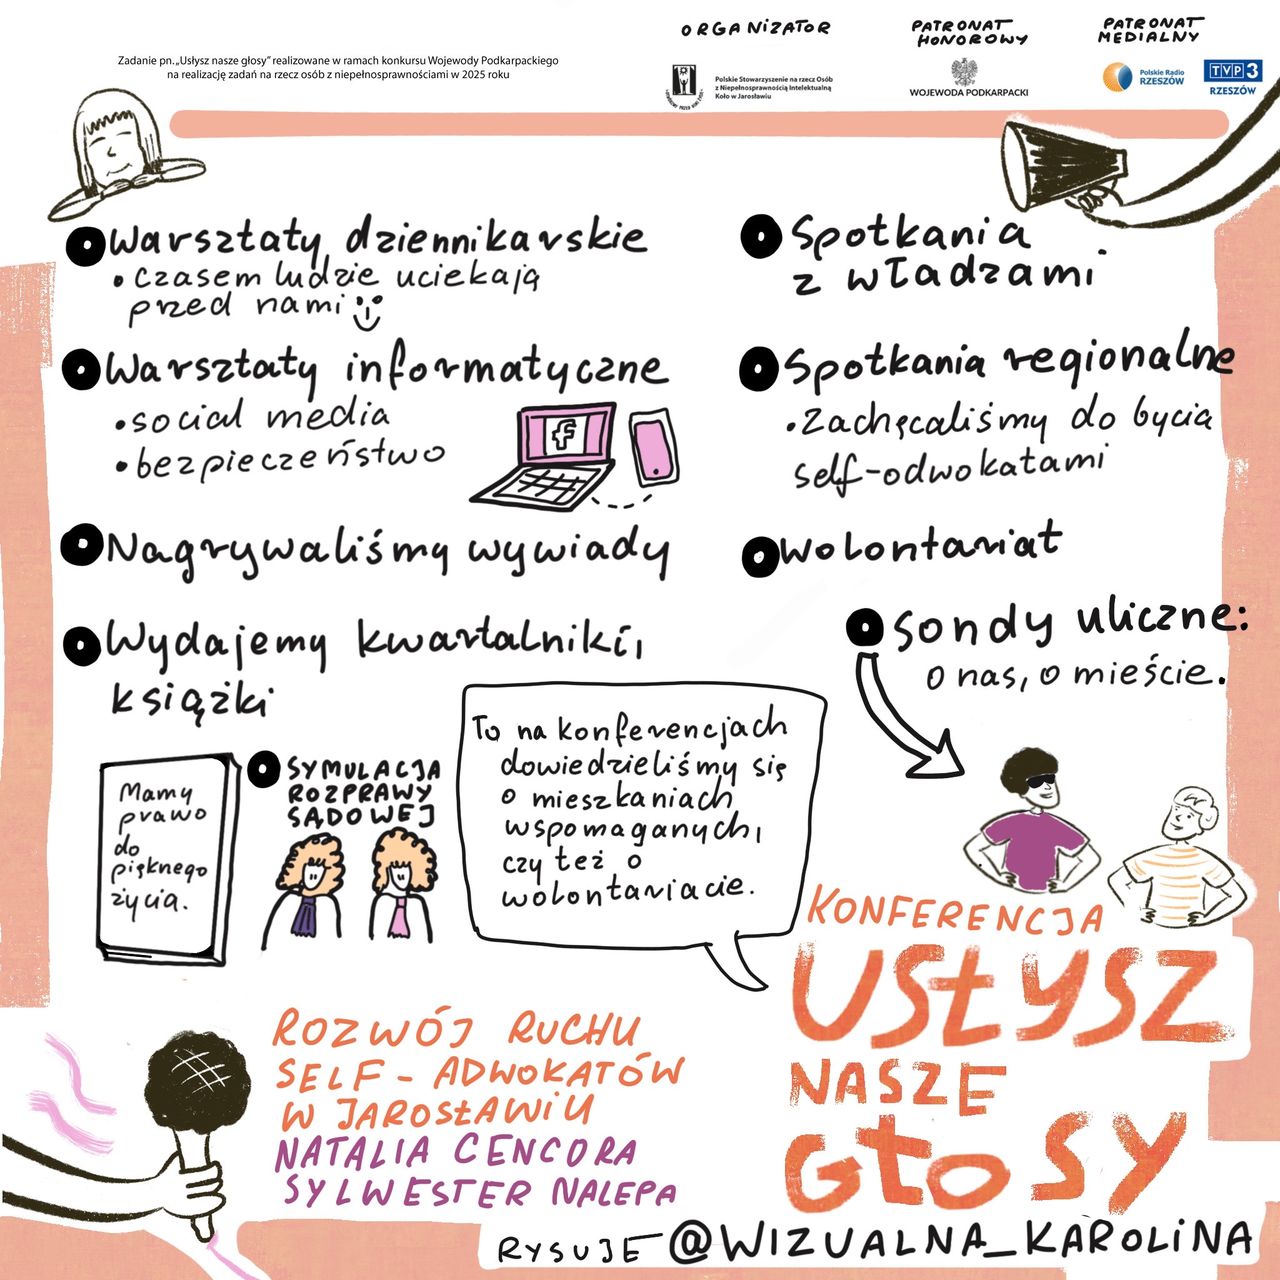 Zadanie pn.„Usłysz nasze głosy” realizowane w ramach konkursu Wojewody Podkarpackiego
na realizację zadań na rzecz osób z niepełnosprawnościami w 2025 roku
ORGANIZATOR
Polskie Stowarzyszenie na rzecz Osób
z Niepełnosprawnością Intelektualną
Koło w Jarosławiu
PATRONAT
HONOROWY
WOJEWODA PODKARPACKI
PATRONAT
MEDIALNY
Polskie Radio
RZESZÓW
TVP3
RZESZÓW
Warsztaty dziennikarskie
• czasem ludzie uciekają
przed nami
Warsztaty informatyczne
• social media
• bezpieczeństwo
f
Nagrywaliśmy wywiady
Wydajemy kwartalniki,
książki
Mamy
prawo
do
pięknego
życia.
SYMULACJA
ROZPRAWY
SĄDOWEJ
To na konferencjach
dowiedzieliśmy się
o mieszkaniach
wspomaganych,
czy też o
wolontariacie.
Spotkania
z władzami
Spotkania regionalne
• Zachęcaliśmy do bycia
self-odwokatami
Wolontariat
Sondy uliczne:
o nas, o mieście.
KONFERENCJA
USŁYSZ
NASZE
GŁOSY
ROZWÓJ RUCHU
SELF-ADWOKATÓW
W JAROSŁAWIU
NATALIA CENCORA
SYLWESTER NALEPA
RYSUJE @WIZUALNA_KAROLINA